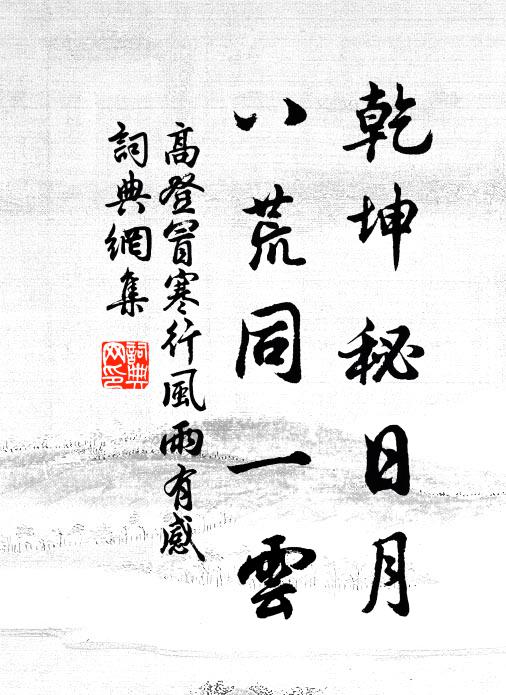 乾坤秘日月
八荒同一雲
高登冒寒行風雨有感
詞典網集
詞典
网印